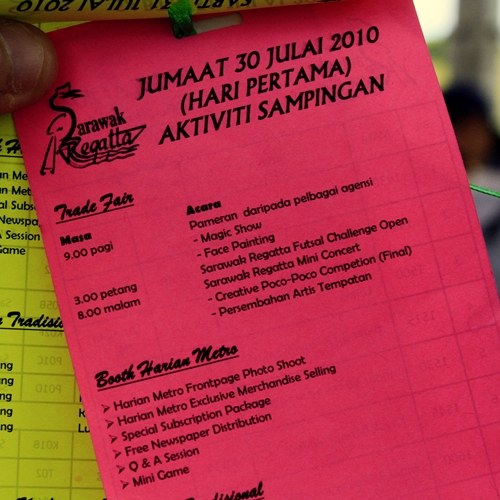 JUMAAT 30 JULAI 2010
(HARI PERTAMA)
AKTIVITI SAMPINGAN
Sarawak
Regatta
Trade Fair
Masa Acara
9.00 pagi Pameran daripada pelbagai agensi
- Magic Show
- Face Painting
3.00 petang Sarawak Regatta Futsal Challenge Open
8.00 malam Sarawak Regatta Mini Concert
- Creative Poco-Poco Competion (Final)
- Persembahan Artis Tempatan
Booth Harian Metro
➢ Harian Metro Frontpage Photo Shoot
➢ Harian Metro Exclusive Merchandise Selling
➢ Special Subscription Package
➢ Free Newspaper Distribution
➢ Q & A Session
➢ Mini Game